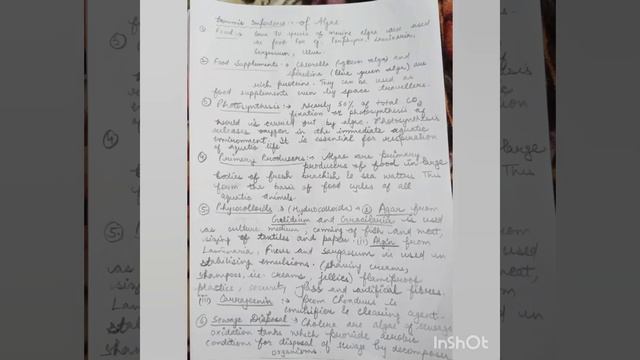 Economic Importance :- of Algae
① Food :- Some 70 species of marine algae used used
as food for eg. Porphyra, Laminaria,
Sargassum, Ulva.
② Food Supplements :- Chlorella (green alga) and
spirulina (blue green alga) are
rich protein. They can be used as
food supplements even by space travellers.
③ Photosynthesis :→ Nearly 50% of total CO2
fixation or photosynthesis of
world is carried out by algae. Photosynthesis
releases oxygen in the immediate aquatic
environment. It is essential for respiration
of aquatic life
④ Primary Producers :- Algae are primary
producers of food in large
bodies of fresh brackish & sea waters. This
form the basis of food cycles of all
aquatic animals.
⑤ Phycocolloids :→ (Hydrocolloids) → (i) Agar from
Gelidium and Gracilaria is used
as culture medium, canning of fish and meat,
sizing of textiles and paper. (ii) Algin from
Laminaria, Fucus and sargassum is used in
stabilising emulsions. (shaving creams,
shampoos, ice-creams, jellies) flameproof
plastics, security glass and artificial fibres.
(iii) Carrageenin :- from Chondrus is
emulsifier & clearing agent.
⑥ Sewage Disposal :- are algae of sewage
oxidation tanks which provide aerobic
conditions for disposal of sewage by decomposer
organisms
InShOt